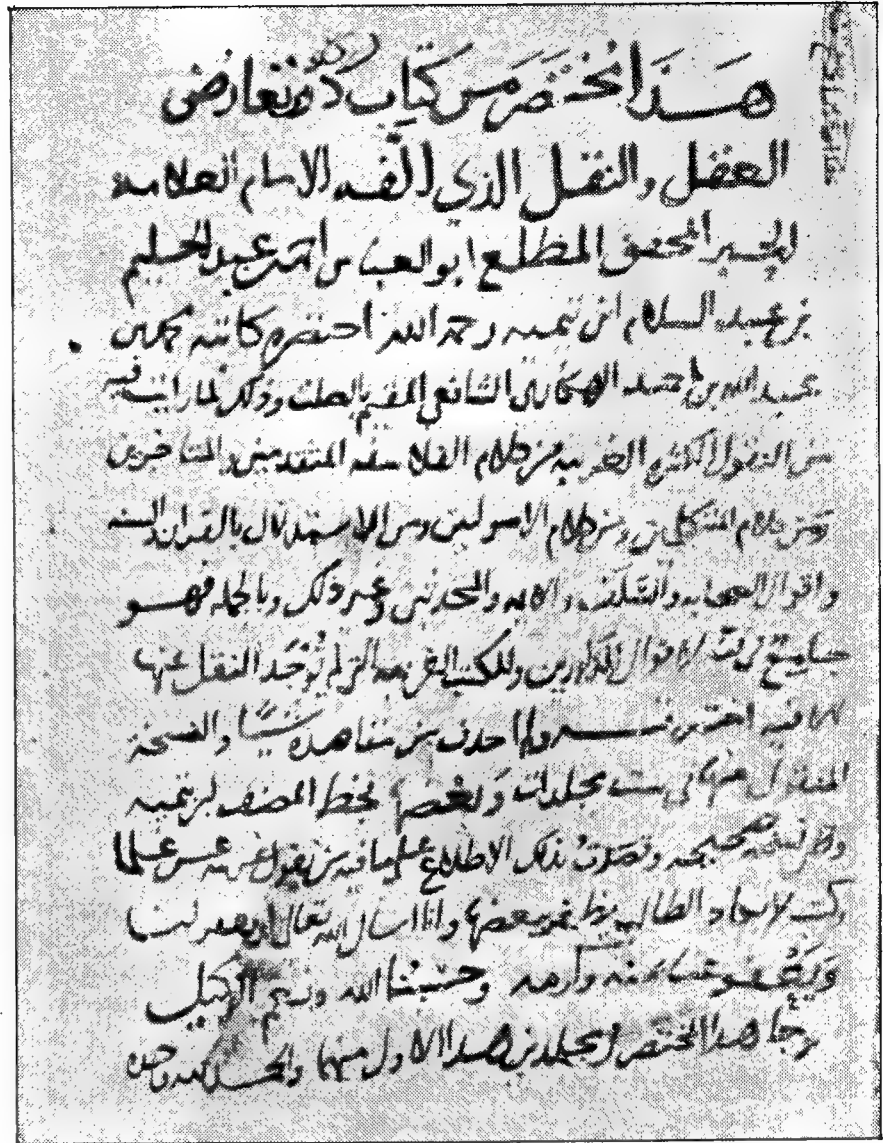 هذا مختصر من كتاب درء تعارض
العقل والنقل الذي الفه الامام العلامة
الحبر المحقق المطلع ابو العباس احمد بن عبد الحليم
بن عبد السلام ابن تيميه رحمه الله اختصره كاتبه محمد بن
عبد الله بن احمد الهكارى الشافعي المقيم بالصلت وذلك لما رايت فيه
من النقول الكثيرة الغريبه من كلام الفلاسفه المتقدمين والمتاخرين
ومن كلام المتكلمين ومن كلام الاصوليين ومن الاستدلال بالقران والسنه
واقوال الصحابه والسلف والايمه والمحدثين وغير ذلك وبالجملة فهو
جامع لاقوال المذكورين وللكتب الغريبه التي لم يوجد النقل عنها
فيه ولم احذف من مقاصده شيئا والنسخة
المنقول منها في ست مجلدات وبعضها بخط المصنف ابن تيميه
صحيحه وقصدت بذلك الاطلاع على ما فيه من نقول غريبه عسر على
الطالب يظفر ببعضها وانا اسال الله تعالى ان يغفر لنا
ويعفو عنا بمنه وكرمه وحسبنا الله ونعم الوكيل
وجا هذا المختصر في مجلدين هذا الاول منهما والحمد لله وحده